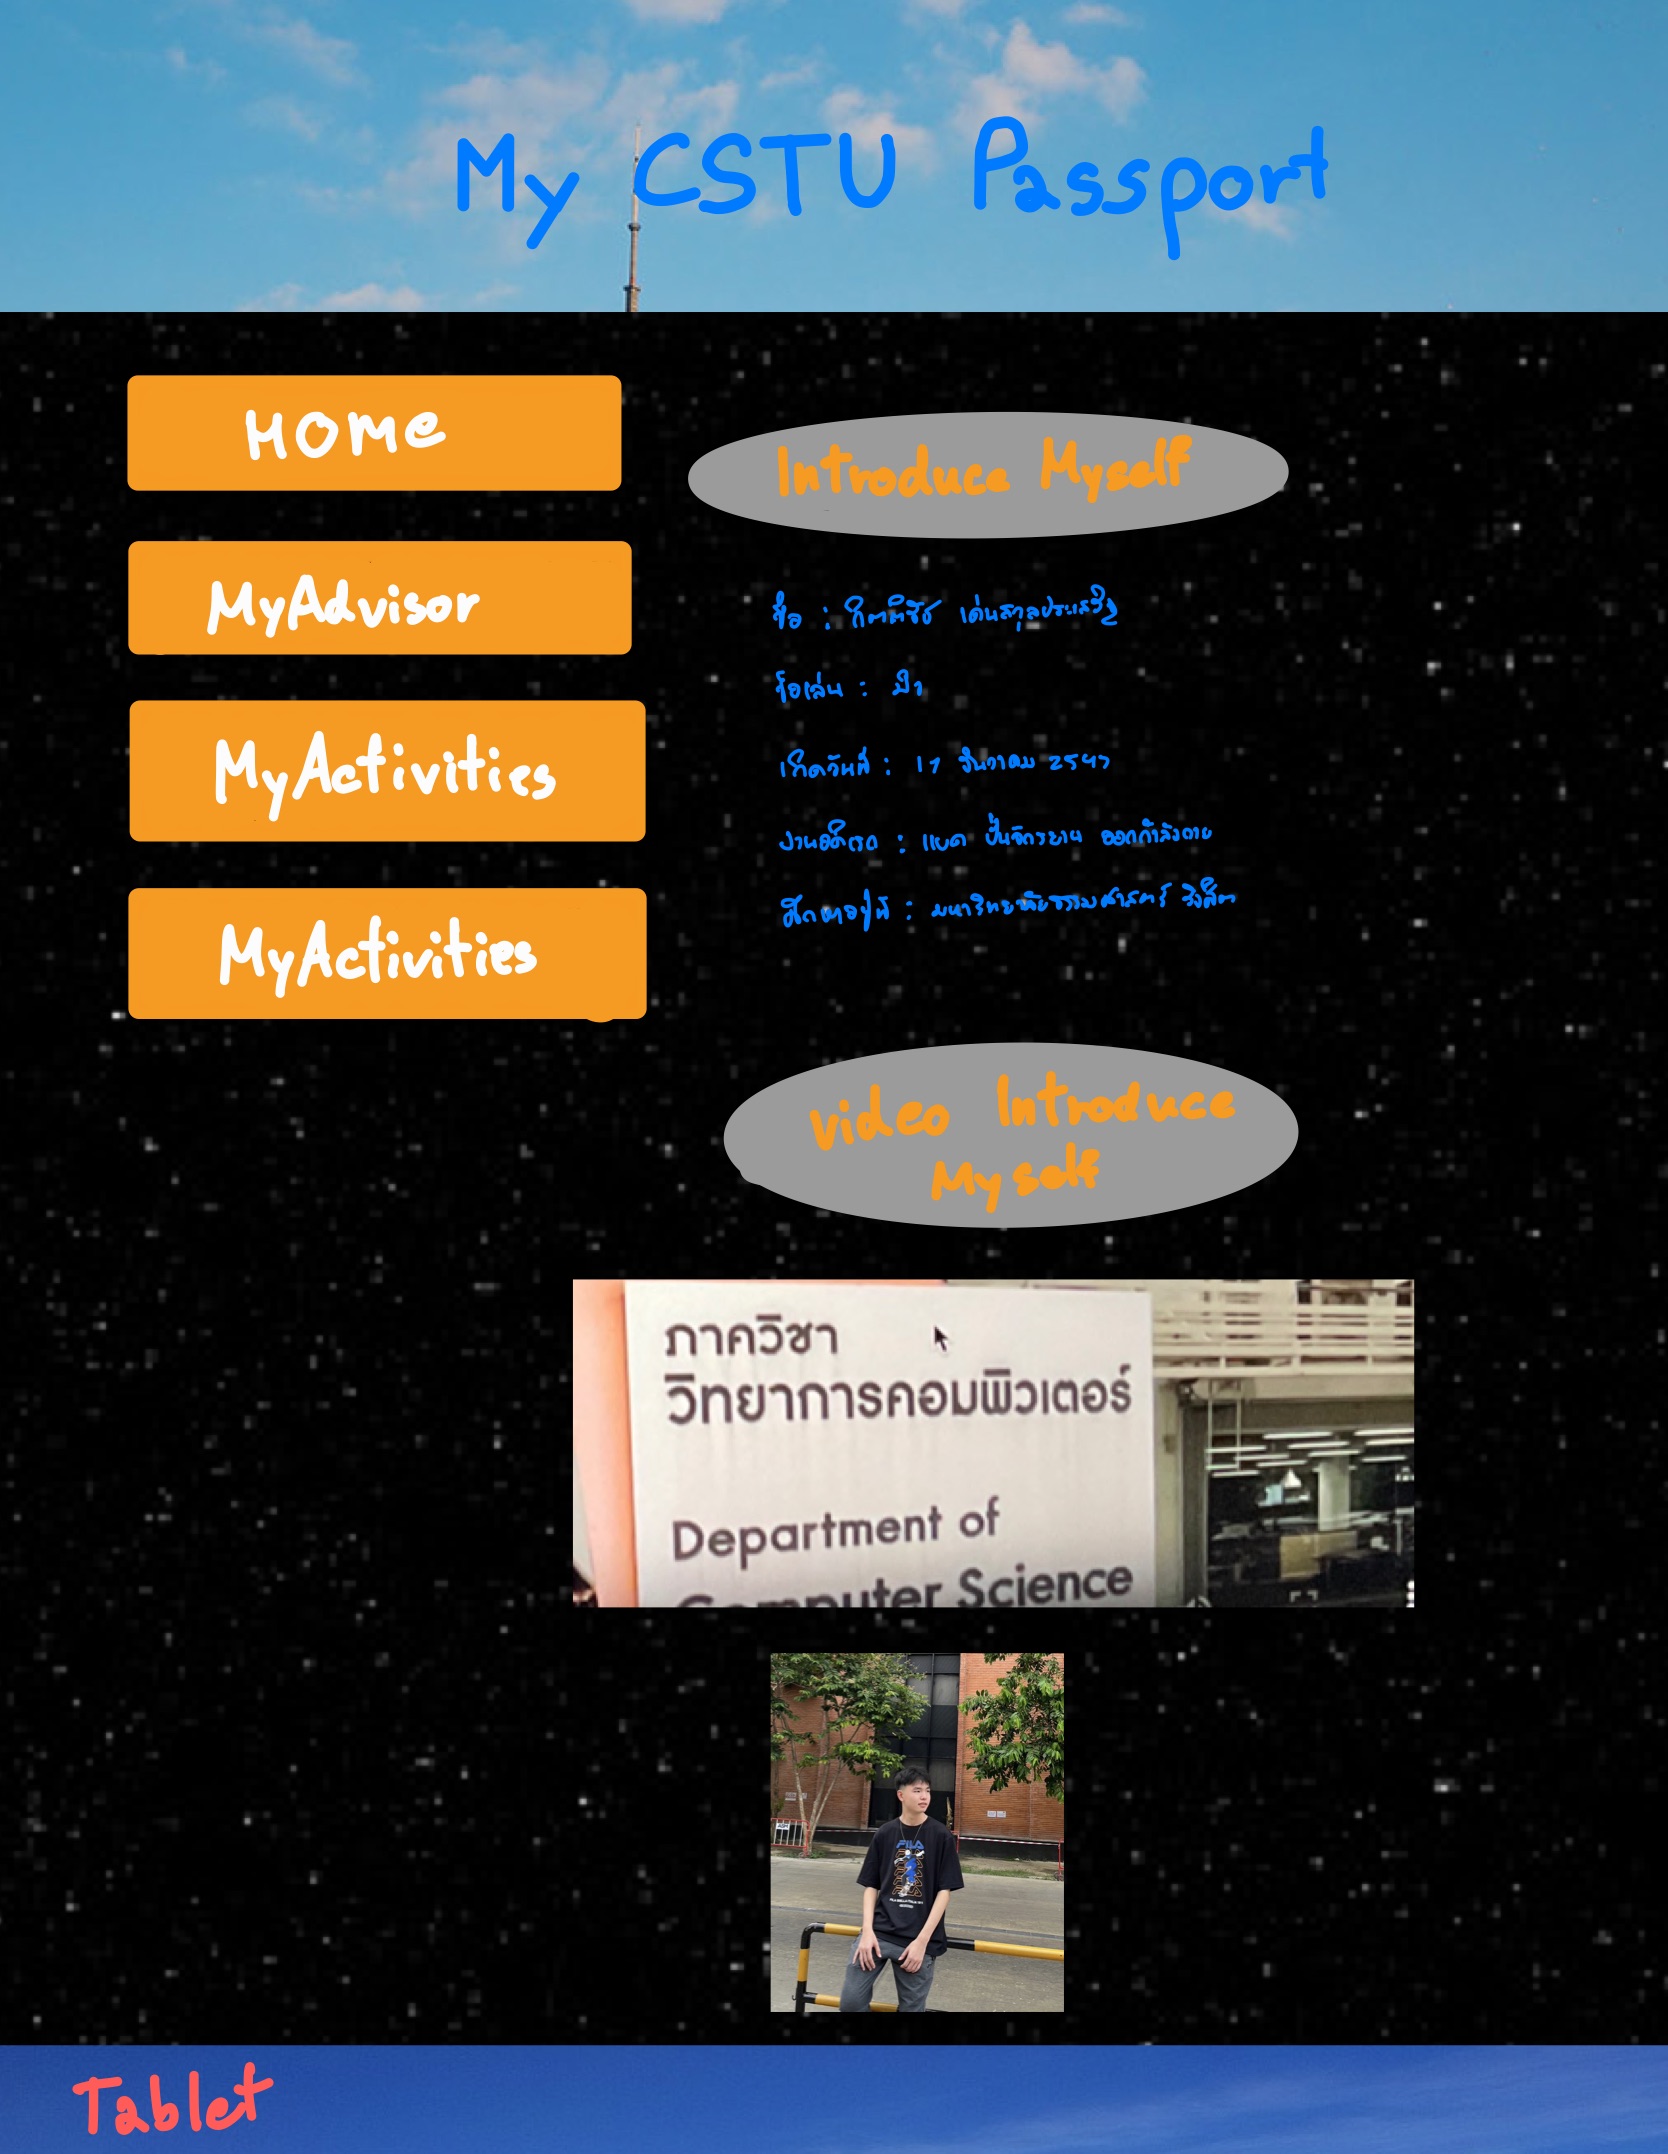 My CSTU Passport
HOMe
MyAdvisor
MyActivities
MyActivities
Introduce Myself
ชื่อ : กิตติชัช เด่นสกุลประเสริฐ
ชื่อเล่น :
เกิดวันที่ : 17 ธันวาคม 2547
งานอดิเรก : แบด ปั่นจักรยาน ออกกำลังกาย
ศึกษาอยู่ที่ : มหาวิทยาลัยธรรมศาสตร์ รังสิต
video Introduce
Myself
ภาควิชา
วิทยาการคอมพิวเตอร์
Department of
Computer Science
FILA
Tablet